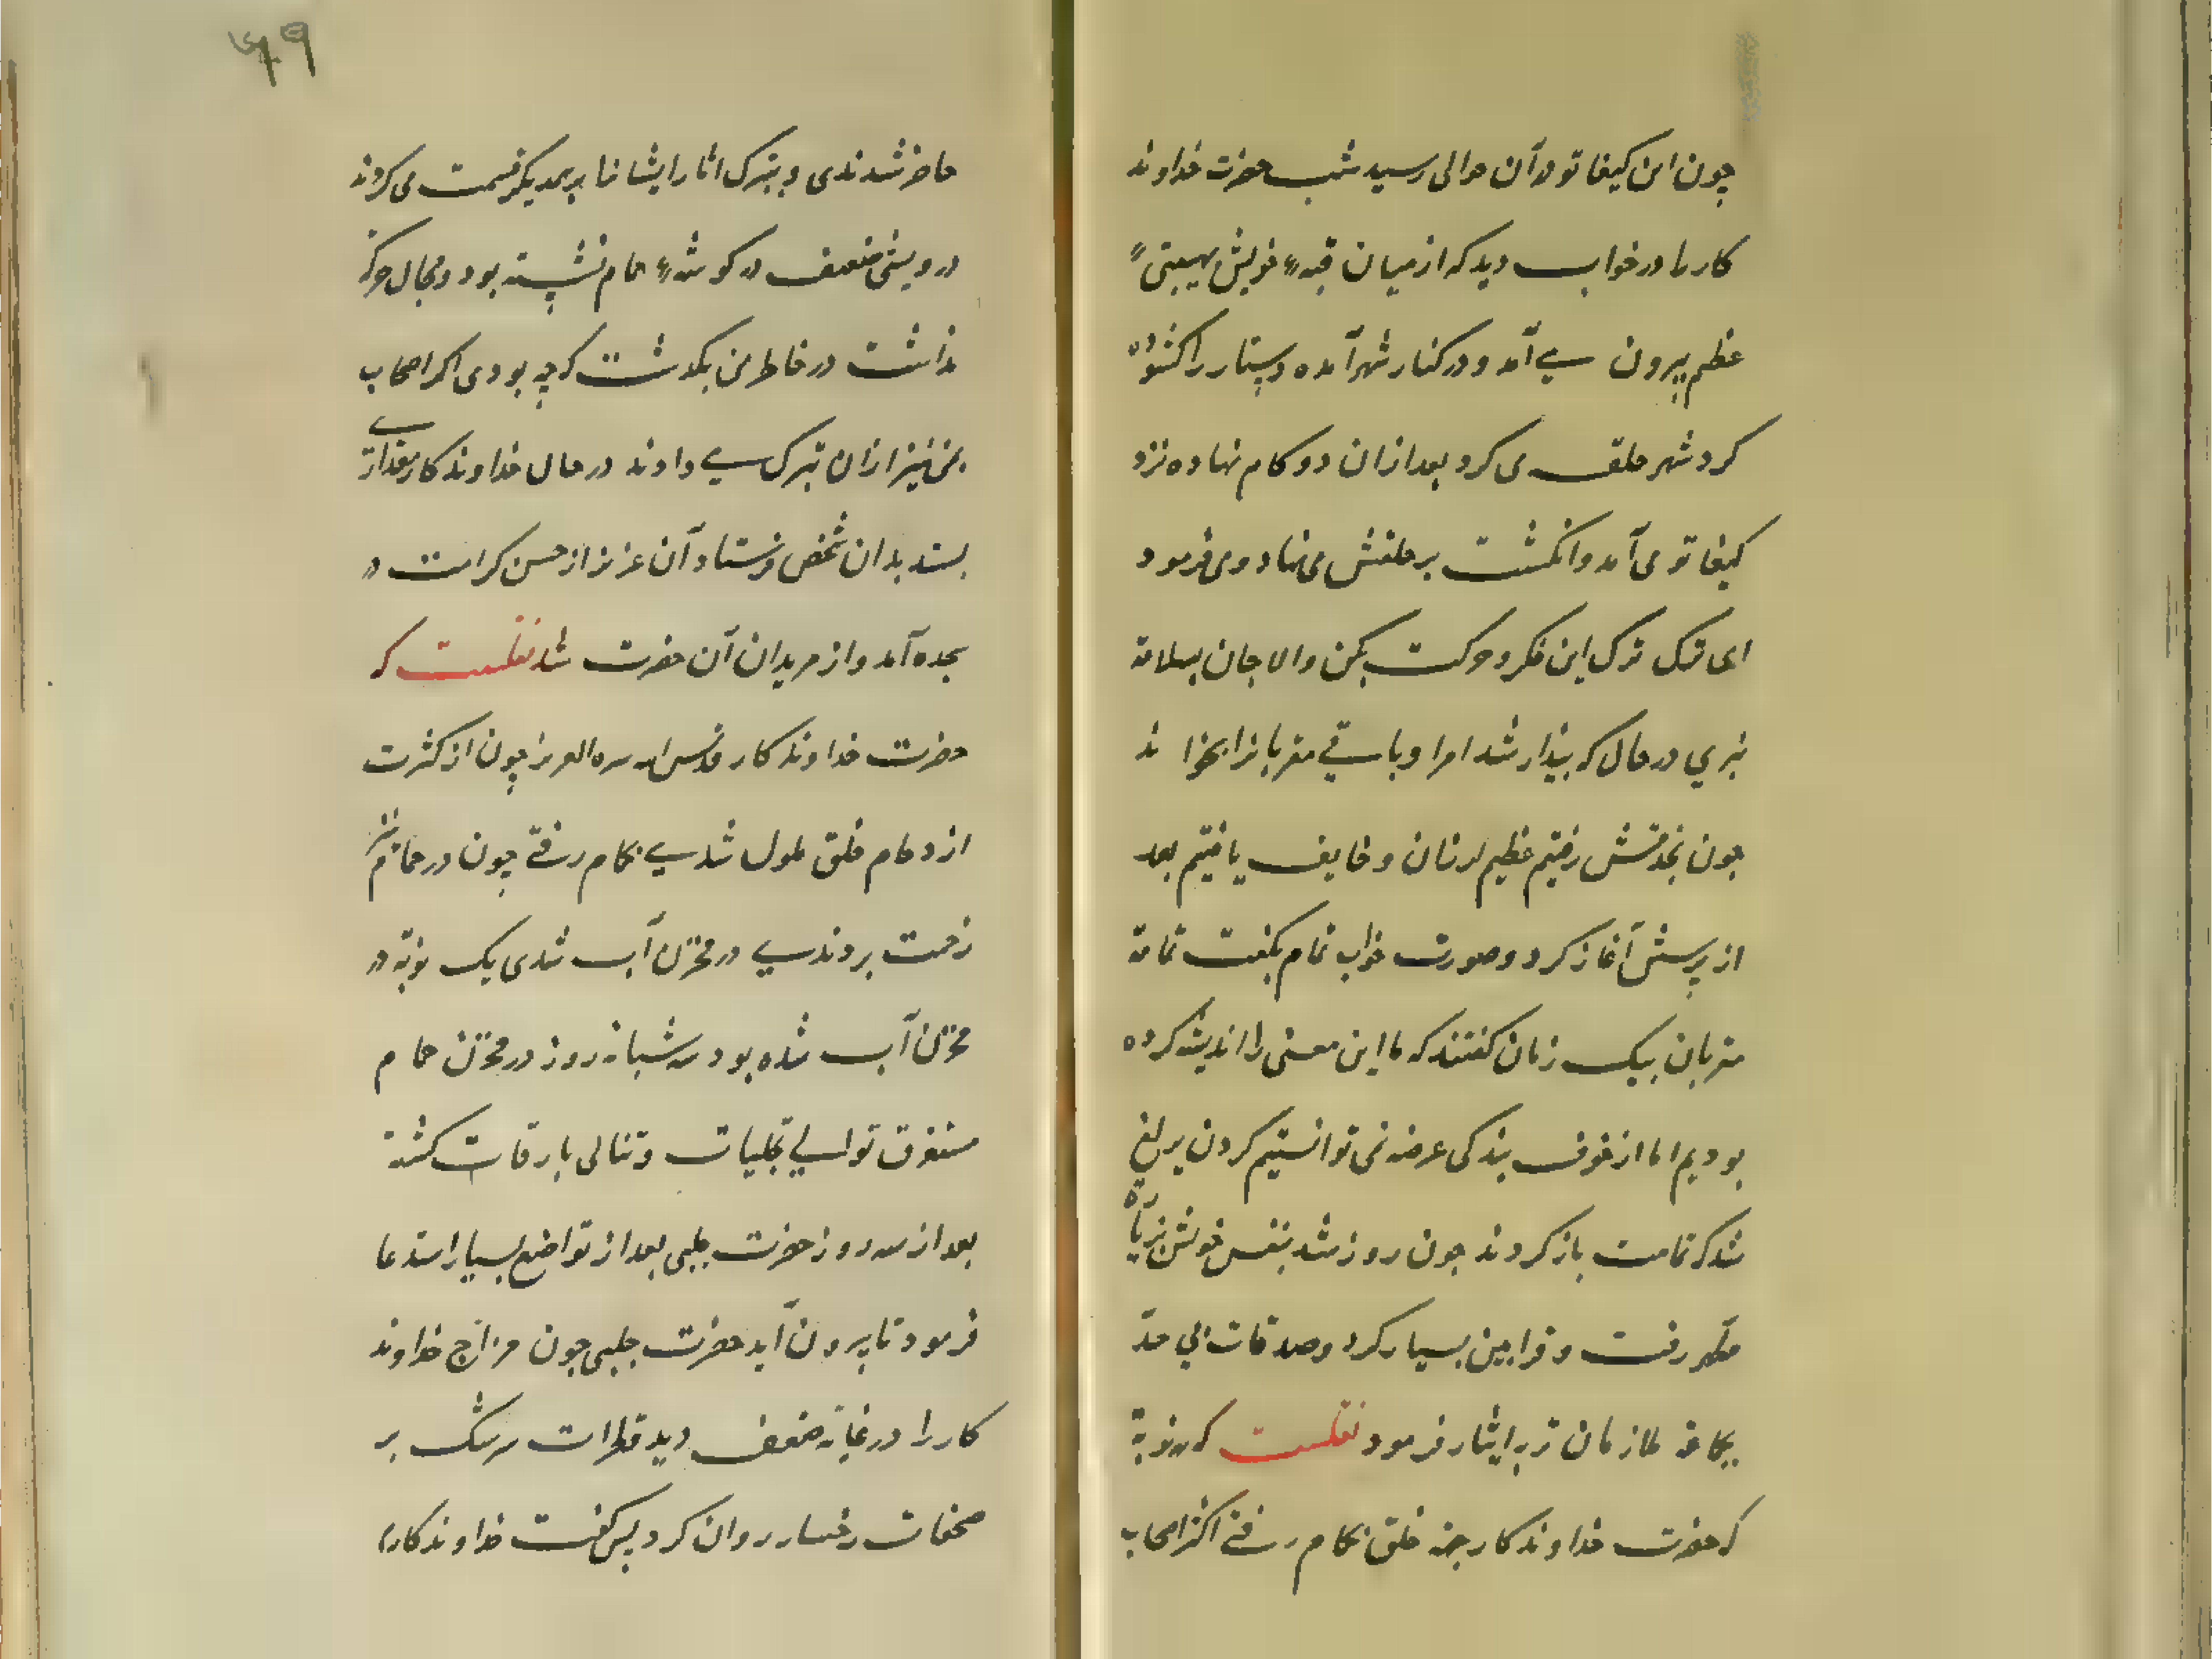 چون این کیغاتو در آن حوالی رسید شب حضرت خداوند
کار را در خواب دید که از میان قبهٔ خویش بهیبتی
عظیم بیرون می آمد و در کنار شهر آمده دستار را کشوده
کرد شهر حلقه می کرد بعد از آن دو کام نهاده نزد
کیغاتو می آمد و انکشت بر حلقش می نهاد و می فرمود
ای ترک ترک این فکر و حرکت بکن والا جان بسلامة
نبری در حال که بیدار شد امرا و باقی مقربانرا بخواند
چون بخدمتش رفتیم عظیم لرزان و خایف یافتیم بعد
از پرسش آغاز کرد و صورت خواب تمام بکفت تمامة
مقربان بیک زمان کفتند که ما این معنی را اندیشه کرده
بودیم اما از خوف بندکی عرضه نمی توانستیم کردن یرلیغ
شد که تمامت باز کردند چون روز شد بنفس خویش بزیارة
مطهر رفت و قرابین بسیار کرد و صدقات بی حد
بکافهٔ ملازمان تربه ایثار فرمود نقلست که هر نوبة
که حضرت خداوندکار جهة خلق بحمام رفتی اکثر اصحاب
۶۹
حاضر شدندی و بتبرک آثار ایشانرا بهمدیکر قسمت می کردند
درویشی ضعیف در کوشهٔ حمام نشسته بود و مجال حرکة
نداشت در خاطر من بکذشت که چه بودی اکر اصحاب
بمن نیز از آن تبرک می دادند در حال خداوندکار مقداری
بستد بدان شخص فرستاد آن عزیز از حسن کرامت در
سجده آمد و از مریدان آن حضرت شد نقلست که
حضرت خداوندکار قدس الله سره العزیز چون از کثرت
ازدحام خلق ملول شدی بحمام رفتی چون در حمام نیز
زحمت بردندی در مخزن آب شدی یک نوبة در
مخزن آب شده بود سه شبانه روز در مخزن حمام
مستغرق توالی تجلیات و تتالی بارقات کشته
بعد از سه روز حضرت چلبی بعد از تواضع بسیار استدعا
فرمود تا بیرون آید حضرت چلبی چون مزاج خداوند
کار را در غایة ضعف دید قطرات سرشک بر
صفحات رخسار روان کرد پس کفت خداوندکار را